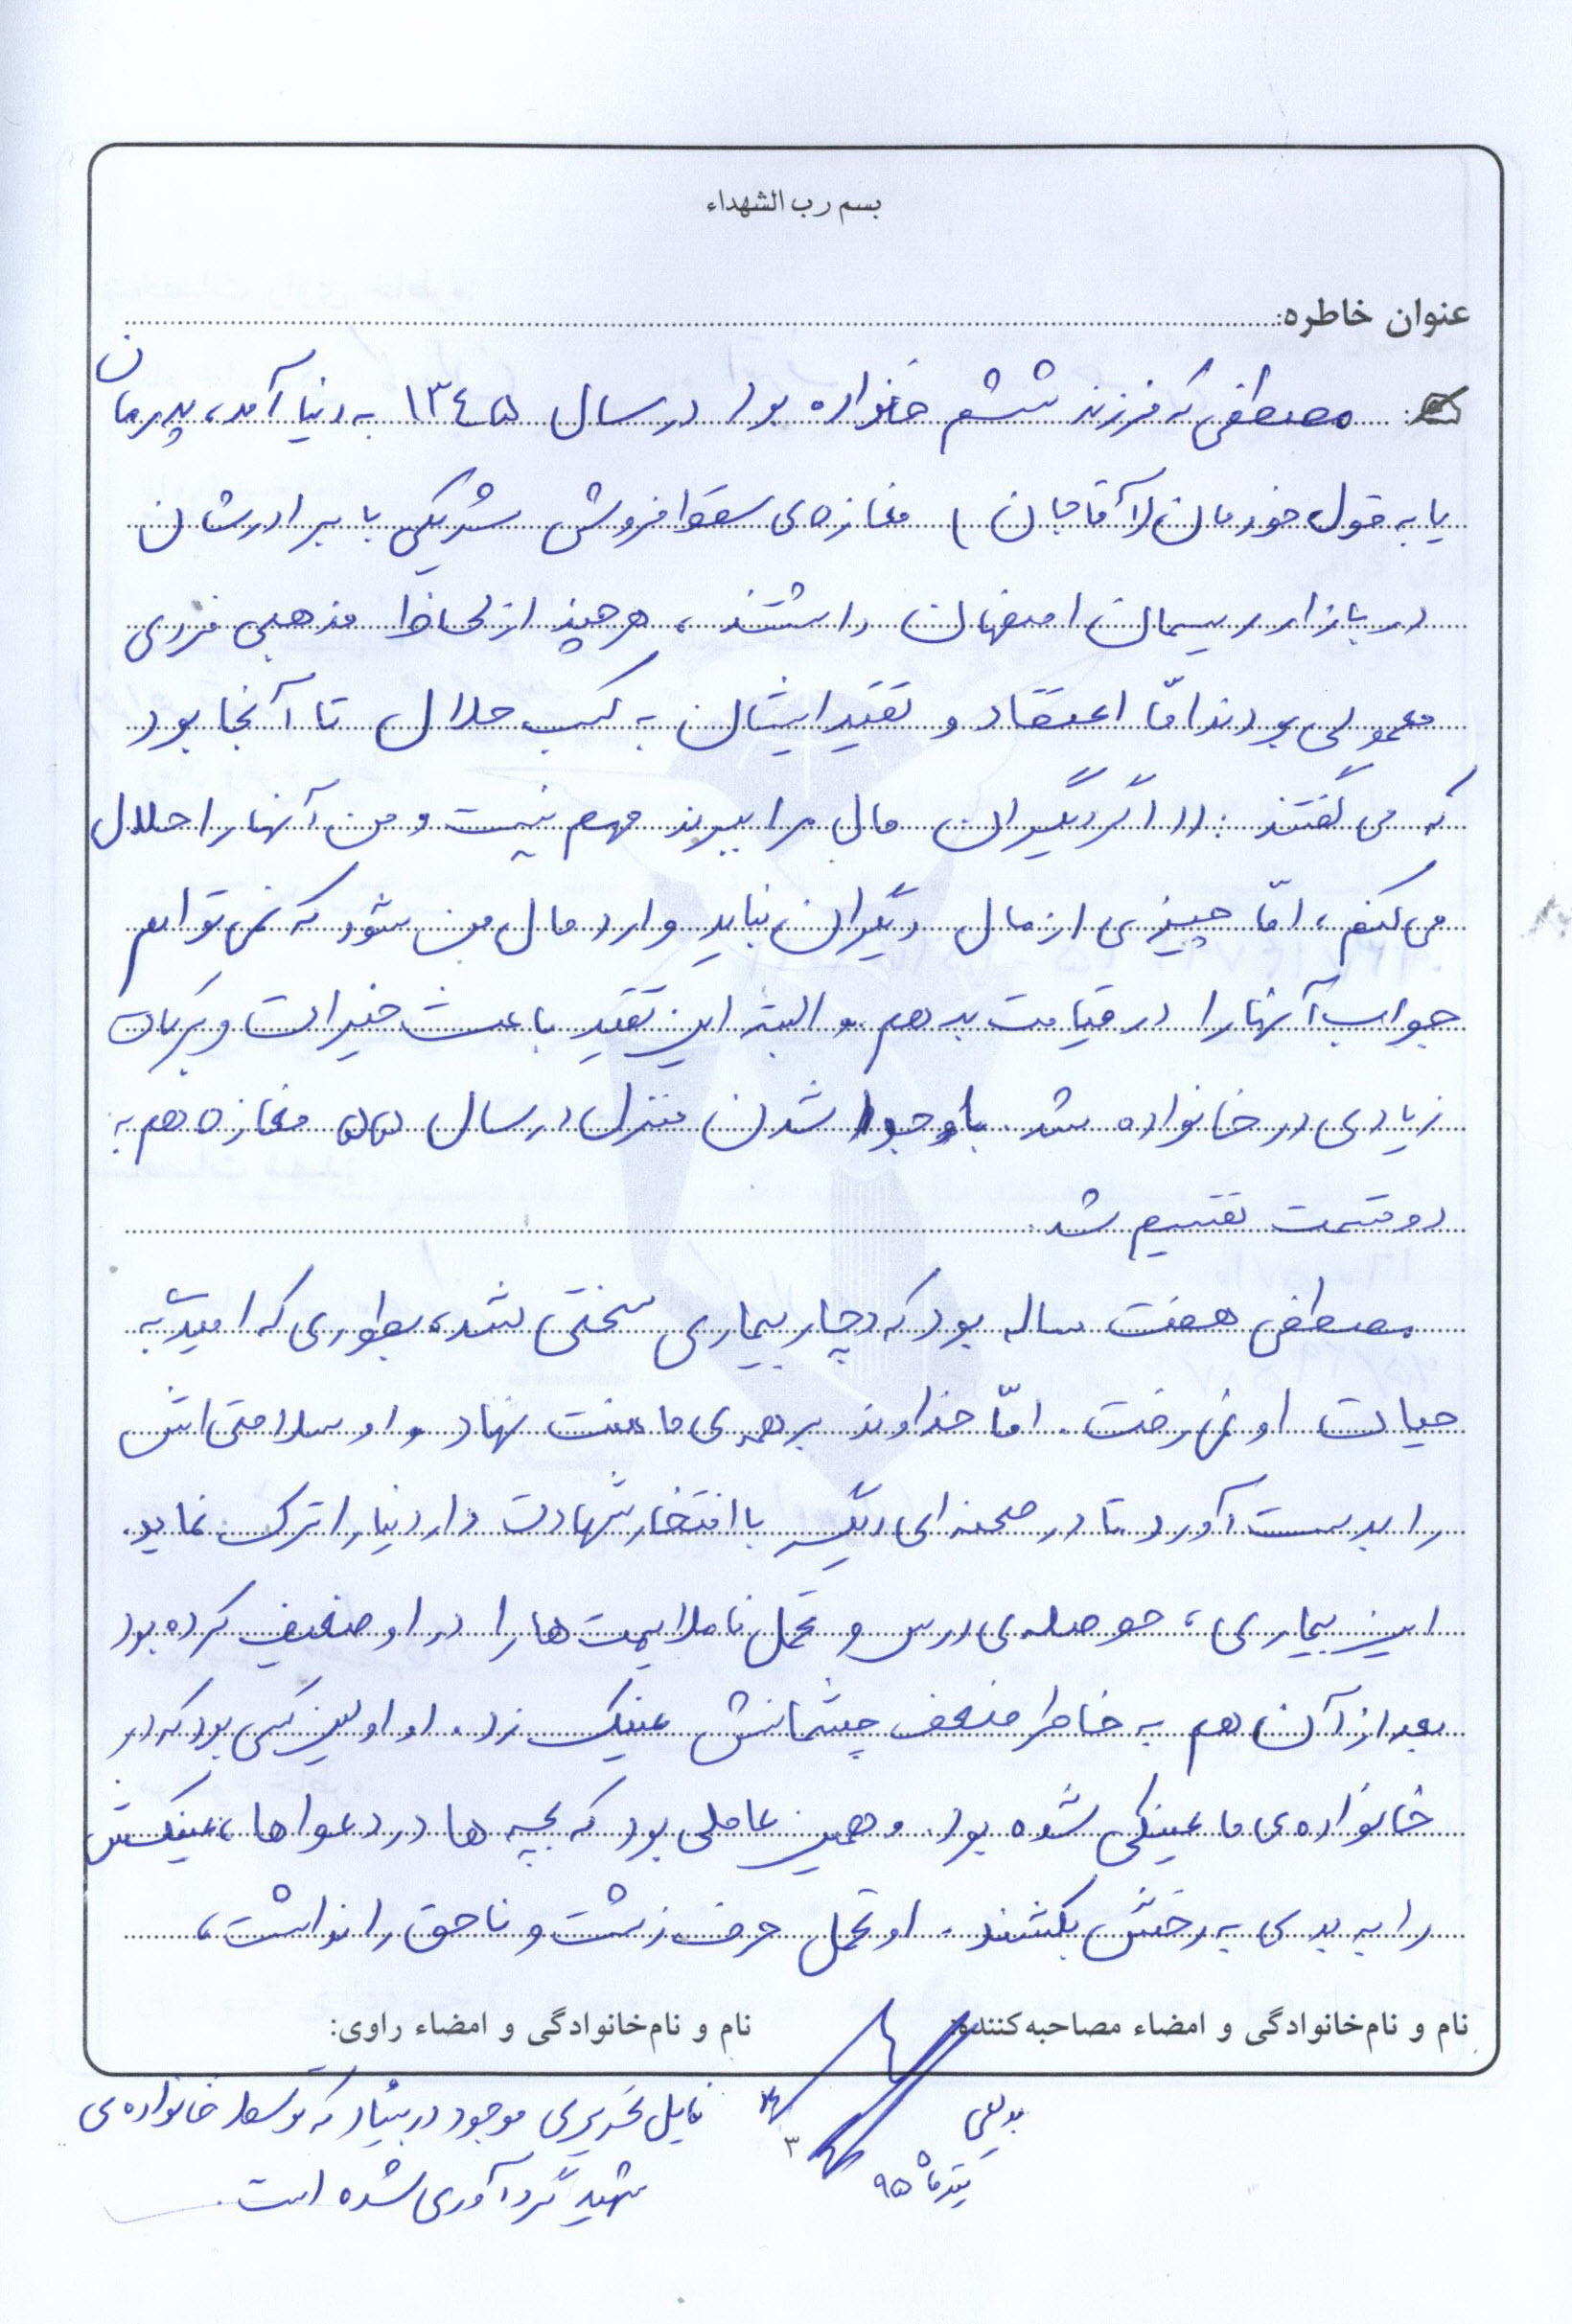 بسم رب الشهداء
عنوان خاطره:
مصطفی که فرزند ششم خانواده بود در سال ۱۳۴۵ به دنیا آمد، پدرمان
یا به قول خودمان (آقاجان) مغازه‌ی سقط فروشی شریکی با برادرشان
در بازار ریسمان اصفهان داشتند، هر چند از لحاظ مذهبی فردی
معمولی بودند امّا اعتقاد و تقید ایشان به کسب حلال تا آنجا بود
که می گفتند: «اگر دیگران مال مرا ببرند مهم نیست و من آنها را حلال
می کنم، امّا چیزی از مال دیگران نباید وارد مال من شود که نمی توانم
جواب آنها را در قیامت بدهم» و البته این تقید باعث خیرات و برکات
زیادی در خانواده شد. با جدا شدن منزل در سال ۵۵ مغازه هم به
دو قسمت تقسیم شد.
مصطفی هفت ساله بود که دچار بیماری سختی شد، بطوری که امید به
حیات او نمی رفت. امّا خداوند بر همه‌ی ما منت نهاد و او سلامتی اش
را بدست آورد تا در صحنه ای دیگر با افتخار شهادت دار دنیا را ترک نماید.
این بیماری، حوصله‌ی درس و تحمل ناملایمت ها را در او ضعیف کرده بود
بعد از آن هم به خاطر ضعف چشمانش عینک زد. او اولین کسی بود که در
خانواده‌ی ما عینکی شده بود. و همین عاملی بود که بچه ها در دعواها، عینکش
را به بدی به رخش بکشند. او تحمل حرف زشت و ناحق را نداشت،
نام و نام‌خانوادگی و امضاء مصاحبه‌کننده: نام و نام‌خانوادگی و امضاء راوی:
فایل تحریری موجود در بنیاد که توسط خانواده‌ی
۳
شهید گردآوری شده است.
۹۵